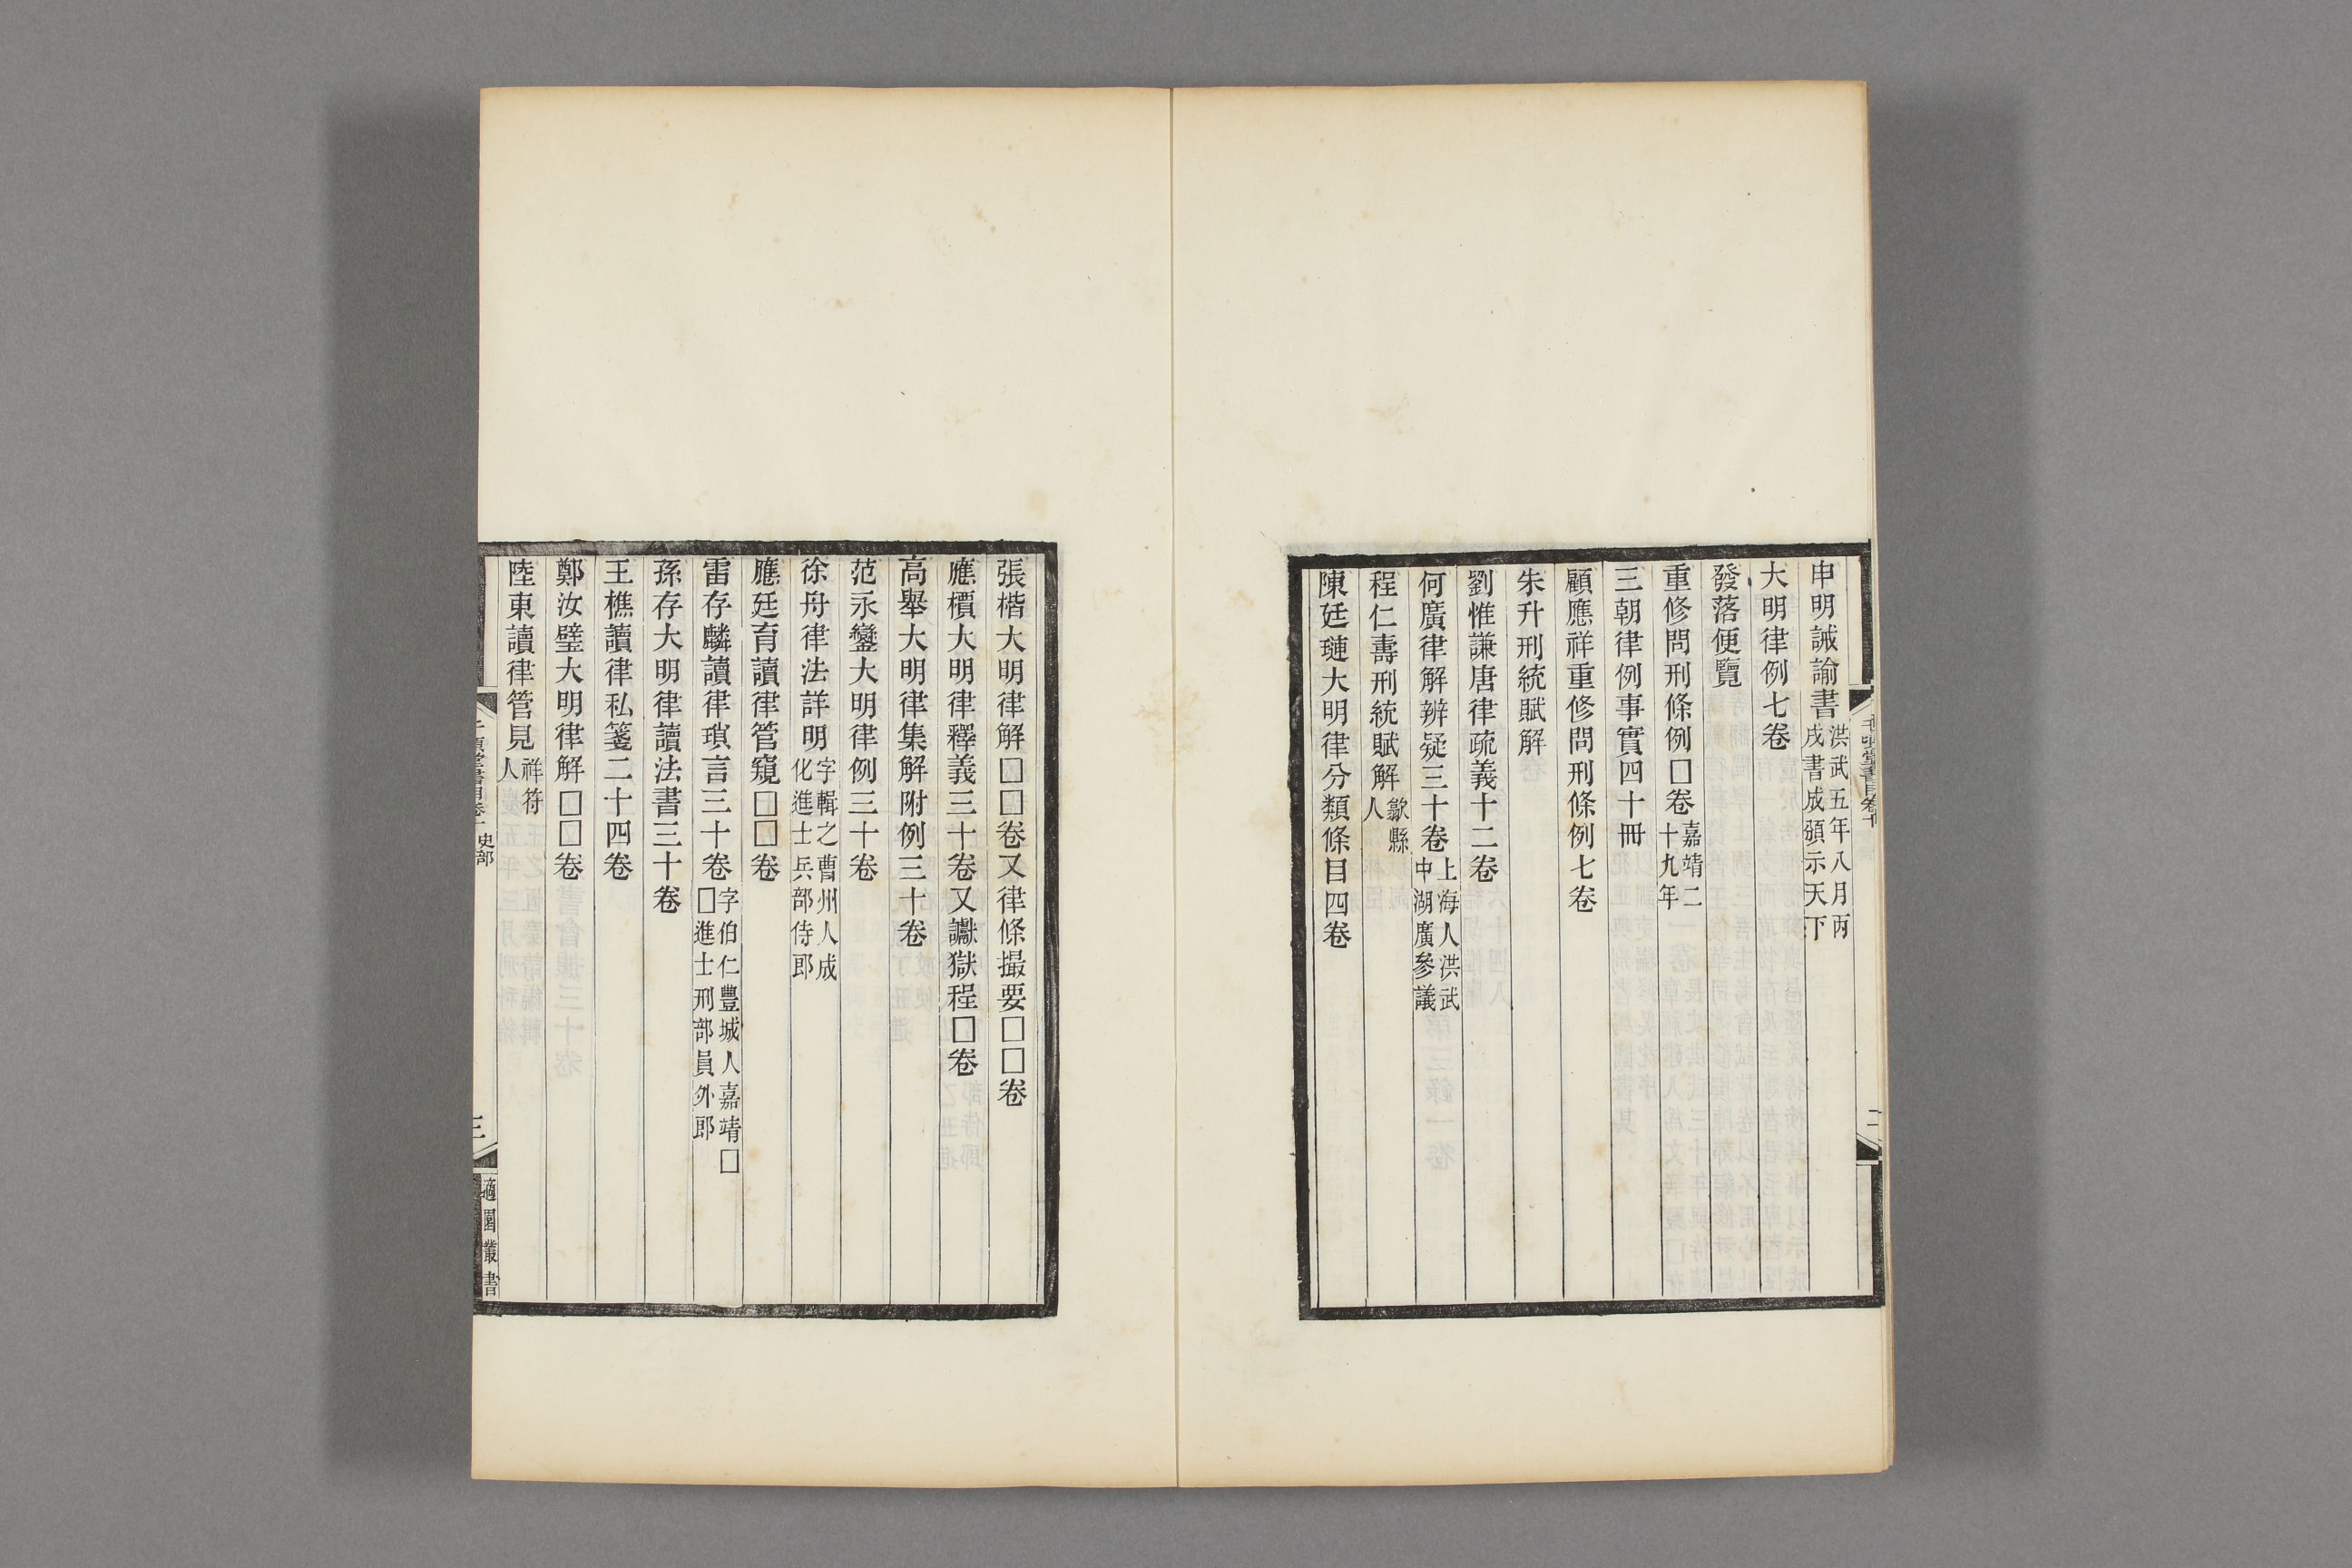 申明誡諭書洪武五年八月丙戌書成頒示天下
大明律例七卷
發落便覽
重修問刑條例□卷嘉靖二十九年
三朝律例事實四十冊
顧應祥重修問刑條例七卷
朱升刑統賦解
劉惟謙唐律疏義十二卷
何廣律解辨疑三十卷上海人洪武中湖廣參議
程仁壽刑統賦解歙縣人
陳廷璉大明律分類條目四卷
張楷大明律解□□卷又律條撮要□□卷
應檟大明律釋義三十卷又讞獄程□卷
高舉大明律集解附例三十卷
范永鑾大明律例三十卷
徐舟律法詳明字輯之曹州人成化進士兵部侍郎
應廷育讀律管窺□□卷
雷存麟讀律瑣言三十卷字伯仁豐城人嘉靖□□進士刑部員外郎
孫存大明律讀法書三十卷
王樵讀律私箋二十四卷
鄭汝璧大明律解□□卷
陸東讀律管見祥符人
史部
三
適園叢書